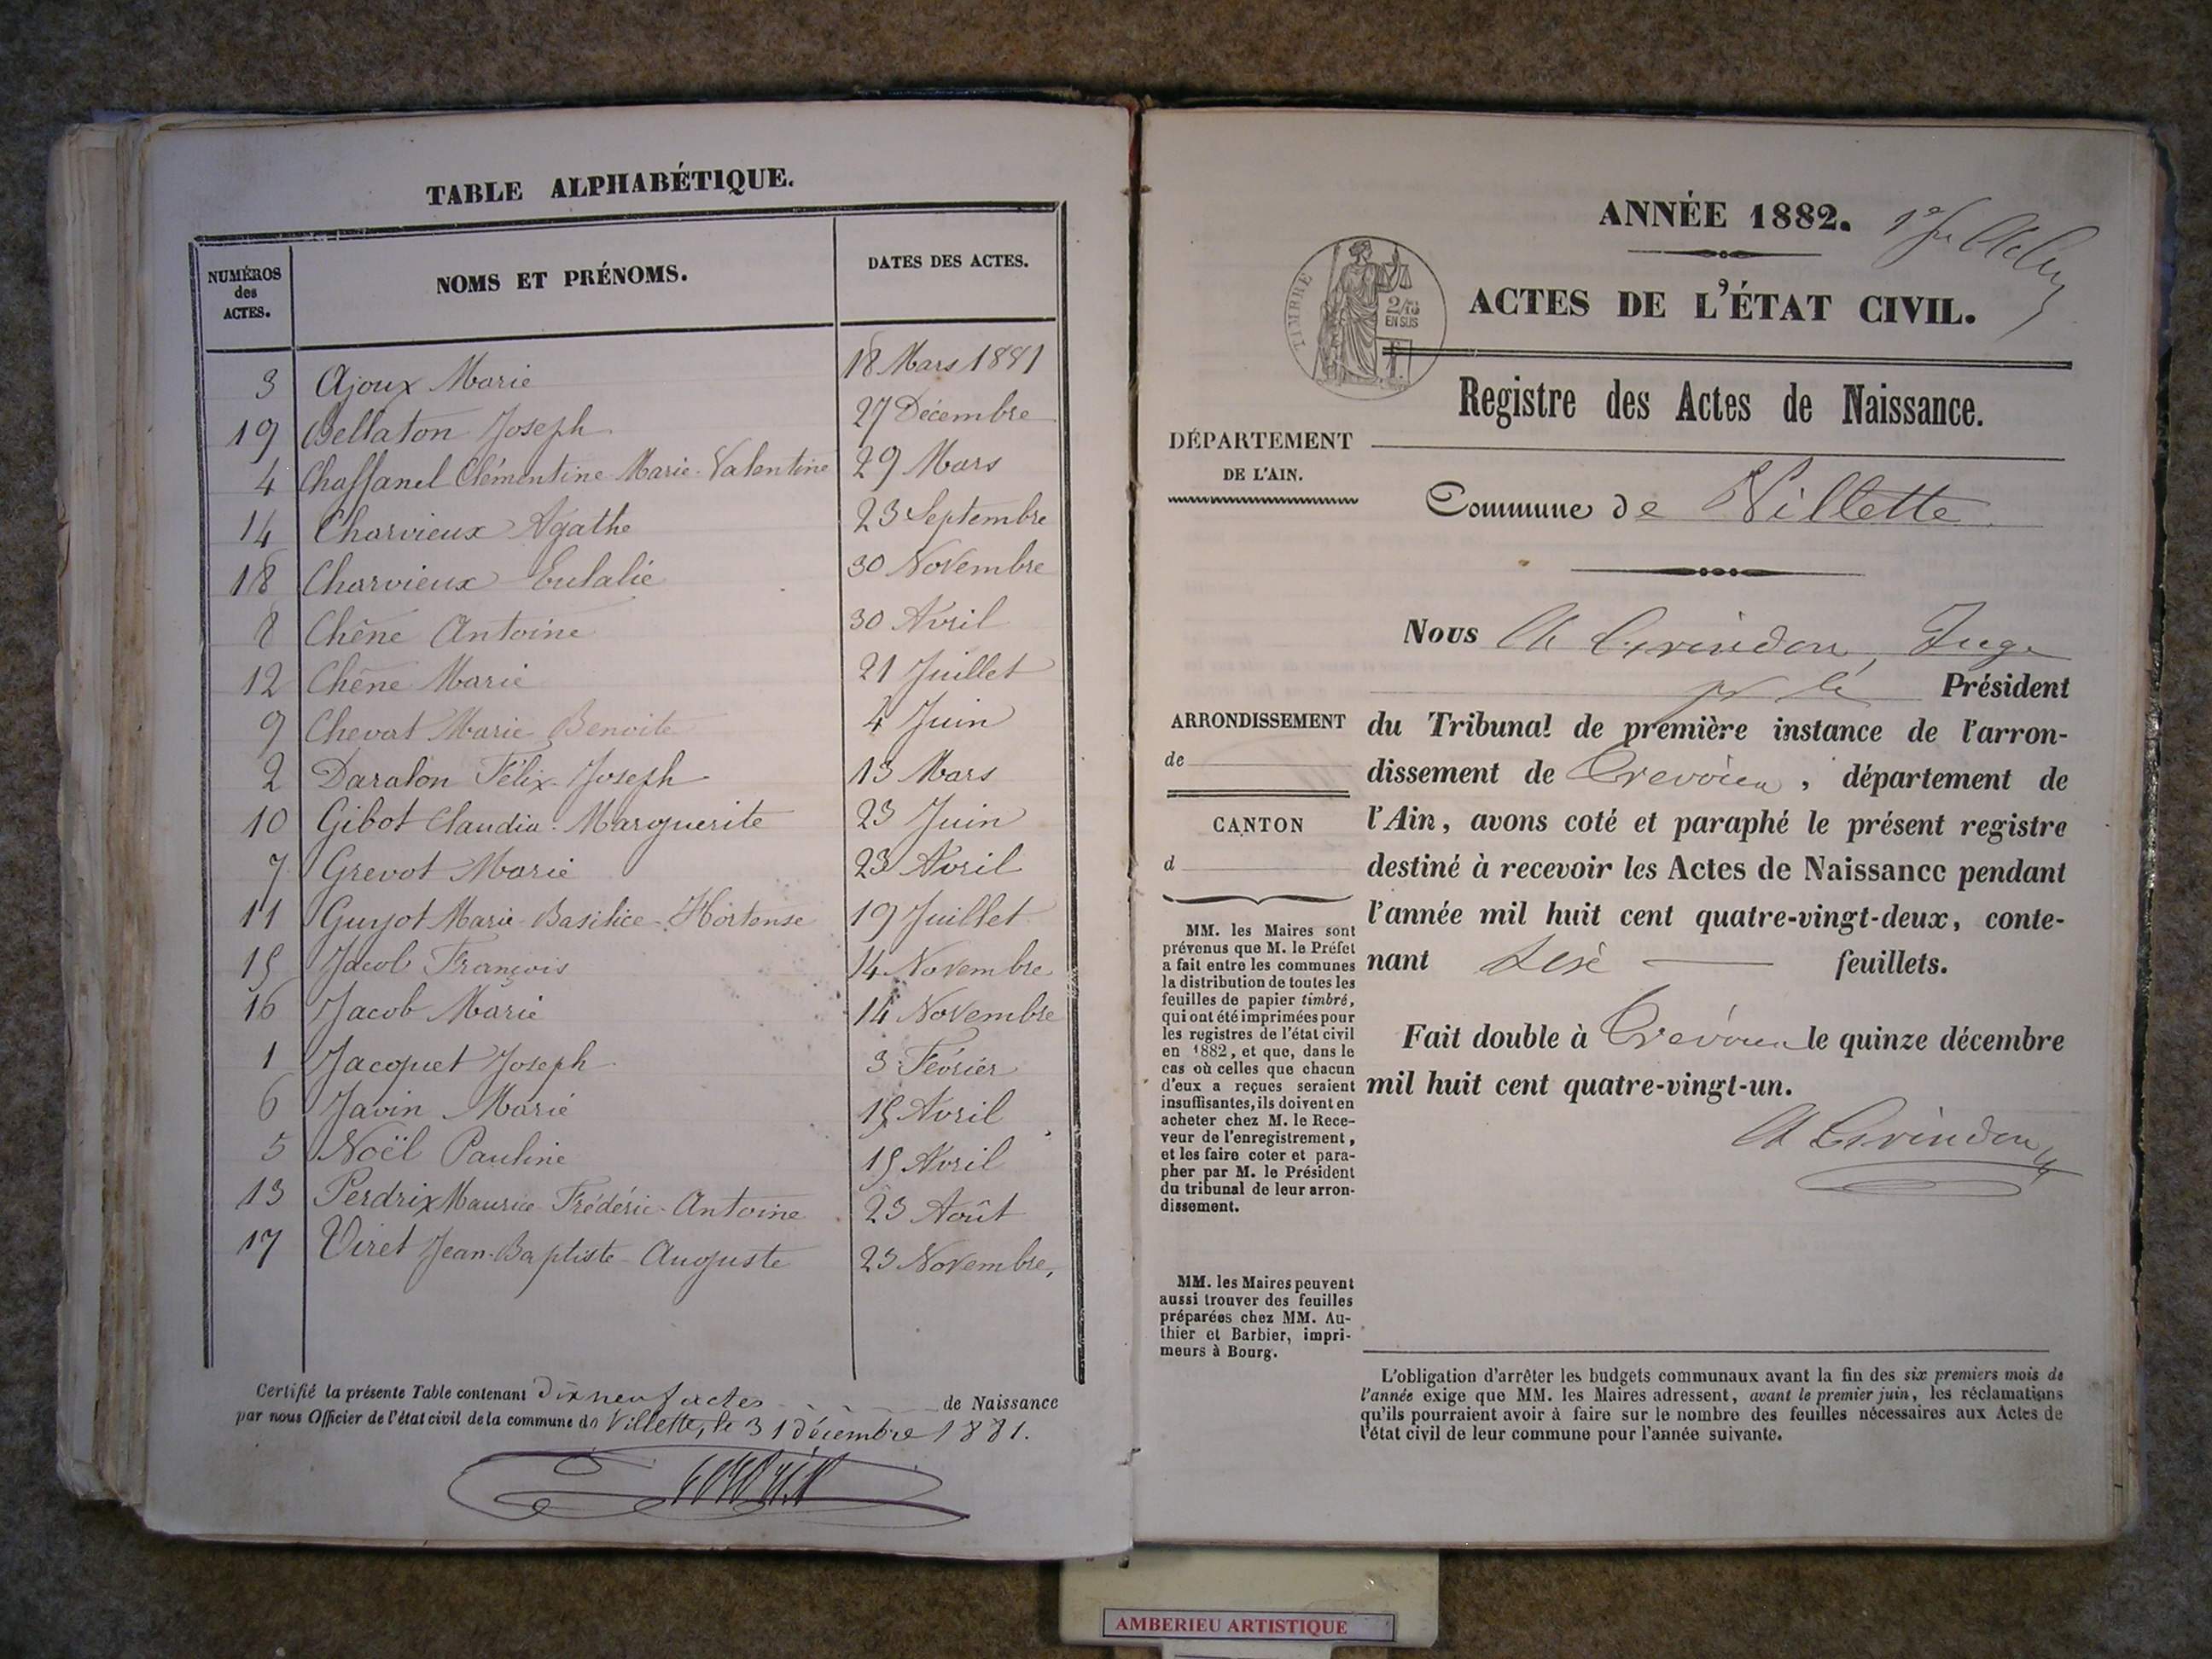 TABLE ALPHABÉTIQUE.
NUMÉROS des ACTES. NOMS ET PRÉNOMS. DATES DES ACTES.
3 Ajoux Marie 18 Mars 1881
19 Bellaton Joseph 27 Décembre
4 Chaffanel Clémentine-Marie-Valentine 29 Mars
14 Charvieux Agathe 23 Septembre
18 Charvieux Eulalie 30 Novembre
8 Chêne Antoine 30 Avril
12 Chêne Marie 21 Juillet
9 Chevat Marie Benoite 4 Juin
2 Daralon Félix-Joseph 13 Mars
10 Gibot Claudia-Marguerite 23 Juin
7 Grevot Marie 23 Avril
11 Guyot Marie-Basilice-Hortense 19 Juillet
15 Jacob François 14 Novembre
16 Jacob Marie 14 Novembre
1 Jacquet Joseph 3 Février
6 Javin Marie 15 Avril
5 Noël Pauline 15 Avril
13 Perdrix Maurice-Frédéric-Antoine 23 Août
17 Viret Jean-Baptiste-Auguste 23 Novembre,
Certifié la présente Table contenant Dix neuf actes de Naissance
par nous Officier de l'état civil de la commune de Villette, le 31 décembre 1881.
ANNÉE 1882.
TIMBRE
2/10
EN SUS
ACTES DE L'ÉTAT CIVIL.
Registre des Actes de Naissance.
DÉPARTEMENT
DE L'AIN.
Commune de Villette
Nous Juge
Président
ARRONDISSEMENT
de
CANTON
d
du Tribunal de première instance de l'arron-
dissement de Trevoux, département de
l'Ain, avons coté et paraphé le présent registre
destiné à recevoir les Actes de Naissance pendant
l'année mil huit cent quatre-vingt-deux, conte-
nant feuillets.
Fait double à Trévoux le quinze décembre
mil huit cent quatre-vingt-un.
MM. les Maires sont
prévenus que M. le Préfet
a fait entre les communes
la distribution de toutes les
feuilles de papier timbré,
qui ont été imprimées pour
les registres de l'état civil
en 1882, et que, dans le
cas où celles que chacun
d'eux a reçues seraient
insuffisantes, ils doivent en
acheter chez M. le Rece-
veur de l'enregistrement,
et les faire coter et para-
pher par M. le Président
du tribunal de leur arron-
dissement.
MM. les Maires peuvent
aussi trouver des feuilles
préparées chez MM. Au-
thier et Barbier, impri-
meurs à Bourg.
L'obligation d'arrêter les budgets communaux avant la fin des six premiers mois de
l'année exige que MM. les Maires adressent, avant le premier juin, les réclamations
qu'ils pourraient avoir à faire sur le nombre des feuilles nécessaires aux Actes de
l'état civil de leur commune pour l'année suivante.
AMBERIEU ARTISTIQUE